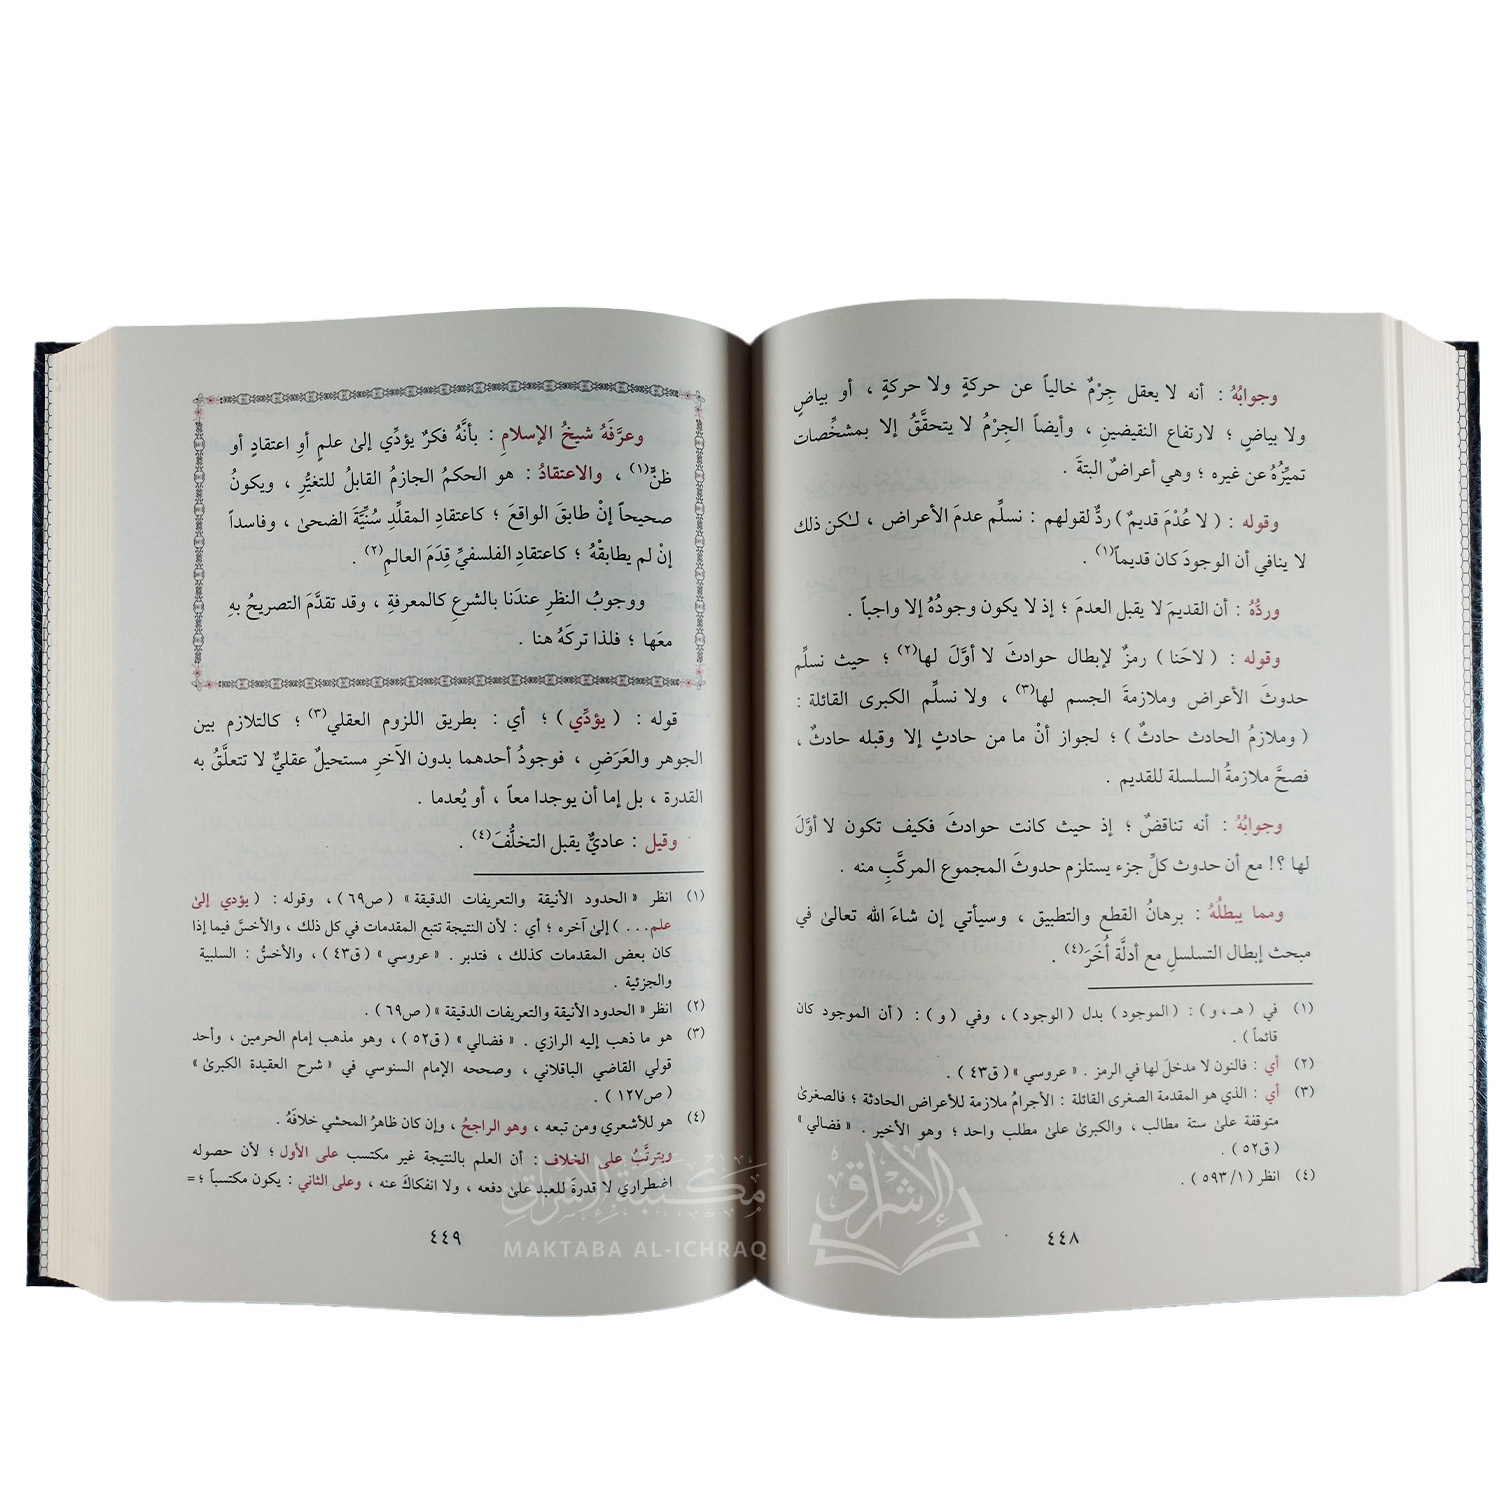 وجوابُهُ : أنه لا يعقل جِرْمٌ خالياً عن حركةٍ ولا حركةٍ ، أو بياضٍ
ولا بياضٍ ؛ لارتفاع النقيضينِ ، وأيضاً الجِرْمُ لا يتحقَّقُ إلا بمشخِّصات
تميِّزُهُ عن غيره ؛ وهي أعراضٌ البتةَ .
وقوله : ( لا عُدْمَ قديمٌ ) ردٌّ لقولهم : نسلِّم عدمَ الأعراض ، لكن ذلك
لا ينافي أن الوجودَ كان قديماً(١) .
وردُّهُ : أن القديمَ لا يقبل العدمَ ؛ إذ لا يكون وجودُهُ إلا واجباً .
وقوله : ( لاحَنا ) رمزٌ لإبطال حوادثَ لا أوَّلَ لها(٢) ؛ حيث نسلِّم
حدوثَ الأعراض وملازمةَ الجسم لها(٣) ، ولا نسلِّم الكبرى القائلة :
( وملازمُ الحادث حادثٌ ) ؛ لجواز أنْ ما من حادثٍ إلا وقبله حادثٌ ،
فصحَّ ملازمةُ السلسلة للقديم .
وجوابُهُ : أنه تناقضٌ ؛ إذ حيث كانت حوادثَ فكيف تكون لا أوَّلَ
لها ؟! مع أن حدوث كلِّ جزء يستلزم حدوثَ المجموع المركَّبِ منه .
ومما يبطلُهُ : برهانُ القطع والتطبيق ، وسيأتي إن شاءَ الله تعالىٰ في
مبحث إبطال التسلسلِ مع أدلَّة أُخَرَ(٤) .
(١) في ( هـ ، و ) : ( الموجود ) بدل ( الوجود ) ، وفي ( و ) : ( أن الموجود كان
قائماً ) .
(٢) أي : فالنون لا مدخلَ لها في الرمز . « عروسي » ( ق٤٣ ) .
(٣) أي : الذي هو المقدمة الصغرى القائلة : الأجرامُ ملازمة للأعراض الحادثة ؛ فالصغرىٰ
متوقفة علىٰ ستة مطالب ، والكبرىٰ علىٰ مطلب واحد ؛ وهو الأخير . « فضالي »
( ق٥٢ ) .
(٤) انظر ( ١/ ٥٩٣ ) .
٤٤٨
وعرَّفَهُ شيخُ الإسلامِ : بأنَّهُ فكرٌ يؤدِّي إلىٰ علمٍ أوِ اعتقادٍ أو
ظنٍّ(١) ، والاعتقادُ : هو الحكمُ الجازمُ القابلُ للتغيُّرِ ، ويكونُ
صحيحاً إنْ طابقَ الواقعَ ؛ كاعتقادِ المقلِّدِ سُنِّيَّةَ الضحىٰ ، وفاسداً
إنْ لم يطابقْهُ ؛ كاعتقادِ الفلسفيِّ قِدَمَ العالمِ(٢) .
ووجوبُ النظرِ عندَنا بالشرعِ كالمعرفةِ ، وقد تقدَّمَ التصريحُ بهِ
معَها ؛ فلذا تركَهُ هنا .
قوله : ( يؤدِّي ) ؛ أي : بطريق اللزوم العقلي(٣) ؛ كالتلازم بين
الجوهر والعَرَضِ ، فوجودُ أحدهما بدون الآخرِ مستحيلٌ عقليٌّ لا تتعلَّقُ به
القدرة ، بل إما أن يوجدا معاً ، أو يُعدما .
وقيل : عاديٌّ يقبل التخلُّفَ(٤) .
(١) انظر « الحدود الأنيقة والتعريفات الدقيقة » ( ص٦٩ ) ، وقوله : ( يؤدي إلىٰ
علم... ) إلىٰ آخره ؛ أي : لأن النتيجة تتبع المقدمات في كل ذلك ، والأخسَّ فيما إذا
كان بعض المقدمات كذلك ، فتدبر . « عروسي » ( ق٤٣ ) ، والأخسُّ : السلبية
والجزئية .
(٢) انظر « الحدود الأنيقة والتعريفات الدقيقة » ( ص٦٩ ) .
(٣) هو ما ذهب إليه الرازي . « فضالي » ( ق٥٢ ) ، وهو مذهب إمام الحرمين ، وأحد
قولي القاضي الباقلاني ، وصححه الإمام السنوسي في « شرح العقيدة الكبرىٰ »
( ص١٢٧ ) .
(٤) هو للأشعري ومن تبعه ، وهو الراجحُ ، وإن كان ظاهرُ المحشي خلافَهُ .
ويترتَّبُ على الخلاف : أن العلم بالنتيجة غير مكتسب على الأول ؛ لأن حصوله
اضطراري لا قدرةَ للعبد علىٰ دفعه ، ولا انفكاكَ عنه ، وعلى الثاني : يكون مكتسباً ؛=
٤٤٩
مكتبة الإشراق
MAKTABA AL-ICHRAQ
الإشراق